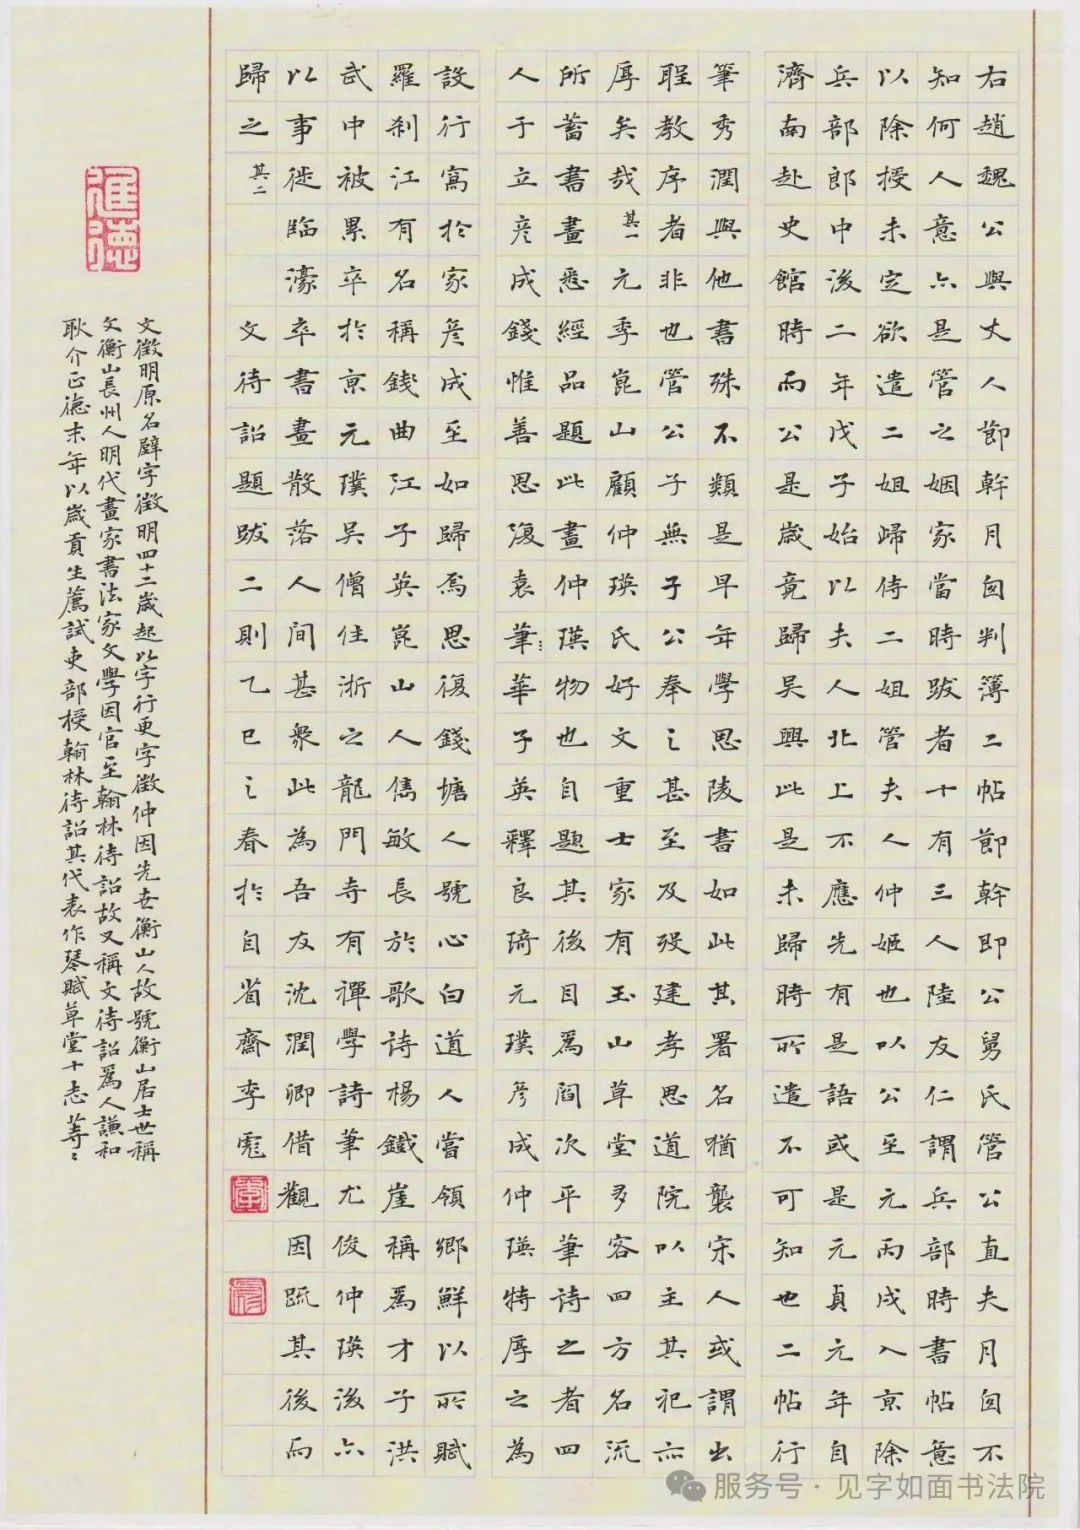 右趙魏公與丈人節幹月囪判簿二帖節幹即公舅氏管公直夫月囪不
知何人意亦是管之姻家當時跋者十有三人陸友仁謂兵部時書帖意
以除授未定欲遣二姐歸侍二姐管夫人仲姬也以公至元丙戌入京除
兵部郎中後二年戊子始以夫人北上不應先有是語或是元貞元年自
濟南赴史館時而公是歲竟歸吳興此是未歸時所遣不可知也二帖行
筆秀潤與他書殊不類是早年學思陵書如此其署名猶襲宋人或謂出
聖教序者非也管公子無子公奉之甚至及歿建孝思道院以主其祀亦
厚矣哉 其一 元季崑山顧仲瑛氏好文重士家有玉山草堂多客四方名流
所蓄書畫悉經品題此畫仲瑛物也自題其後目爲閻次平筆詩之者四
人于立彥成錢惟善思復袁筆華子英釋良琦元璞彥成仲瑛特厚之為
設行窩於家彥成至如歸焉思復錢塘人號心白道人嘗領鄉鮮以所賦
羅刹江有名稱錢曲江子英崑山人雋敏長於歌詩楊鐵崖稱爲才子洪
武中被累卒於京元璞吳僧住浙之龍門寺有禪學詩筆尤俊仲瑛後亦
以事徙臨濠卒書畫散落人間甚衆此為吾友沈潤卿借觀因疏其後而
歸之 其二 文待詔題跋二則乙巳之春於自省齋李彪
文徵明原名壁字徵明四十二歲起以字行更字徵仲因先世衡山人故號衡山居士世稱
文衡山長州人明代畫家書法家文學因官至翰林待詔故又稱文待詔爲人謙和
耿介正德末年以歲貢生薦試吏部授翰林待詔其代表作琴賦草堂十志等等
進德
服务号·见字如面书法院